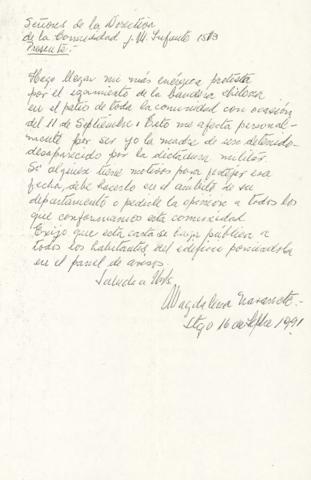 Señores de la Directiva
de la Comunidad J. M. Infante 1513
Presente.-
Hago llegar mi más enérgica protesta
por el izamiento de la bandera chilena
en el patio de toda la comunidad con ocasión
del 11 de Septiembre. Esto me afecta personal-
mente por ser yo la madre de un detenido-
desaparecido por la dictadura militar.
Si alguien tiene motivos para festejar esa
fecha, debe hacerlo en el ámbito de su
departamento o pedirle la opinión a todos los
que conformamos esta comunidad.
Exijo que esta carta se haga pública a
todos los habitantes del edificio poniéndola
en el panel de avisos.
Saluda a Uds.
Magdalena Navarrete.-
Stgo 16 de Sepbre 1991